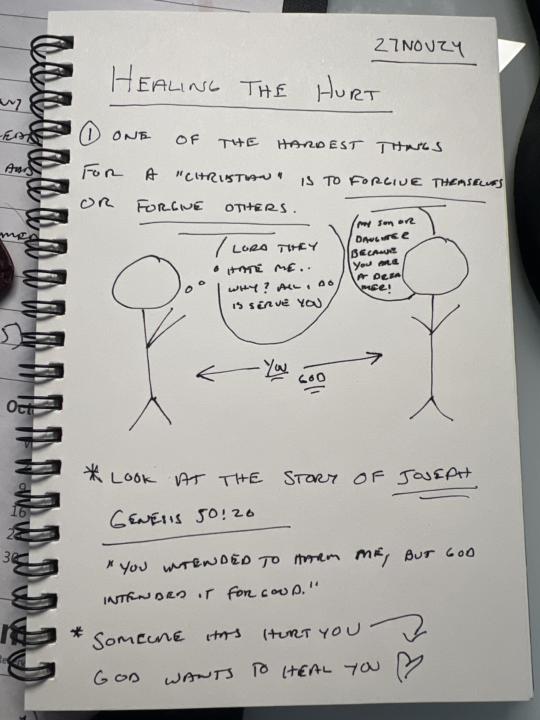 27NOV24
HEALING THE HURT
① ONE OF THE HARDEST THINGS
FOR A "CHRISTIAN" IS TO FORGIVE THEMSELVES
OR FORGIVE OTHERS.
LORD THEY
HATE ME..
WHY? ALL I DO
IS SERVE YOU
MY SON OR
DAUGHTER
BECAUSE
YOU ARE
A DREA
MER!
YOU
GOD
* LOOK AT THE STORY OF JOSEPH
GENESIS 50:20
"YOU INTENDED TO HARM ME, BUT GOD
INTENDED IT FOR GOOD."
* SOMEONE HAS HURT YOU
GOD WANTS TO HEAL YOU
Oct
9
16
30